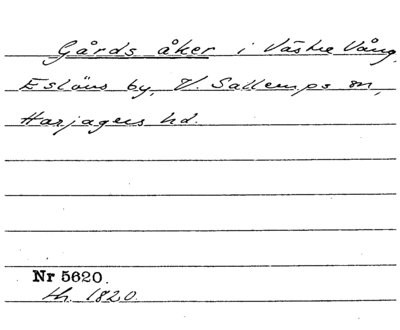 Gårds åker i Västre Vång,
Eslövs by, V. Sallerups sn,
Harjagers hd.
Nr 5620.
1820.